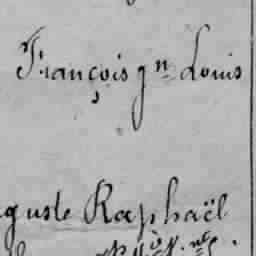 François gn Louis
guste Raphaël